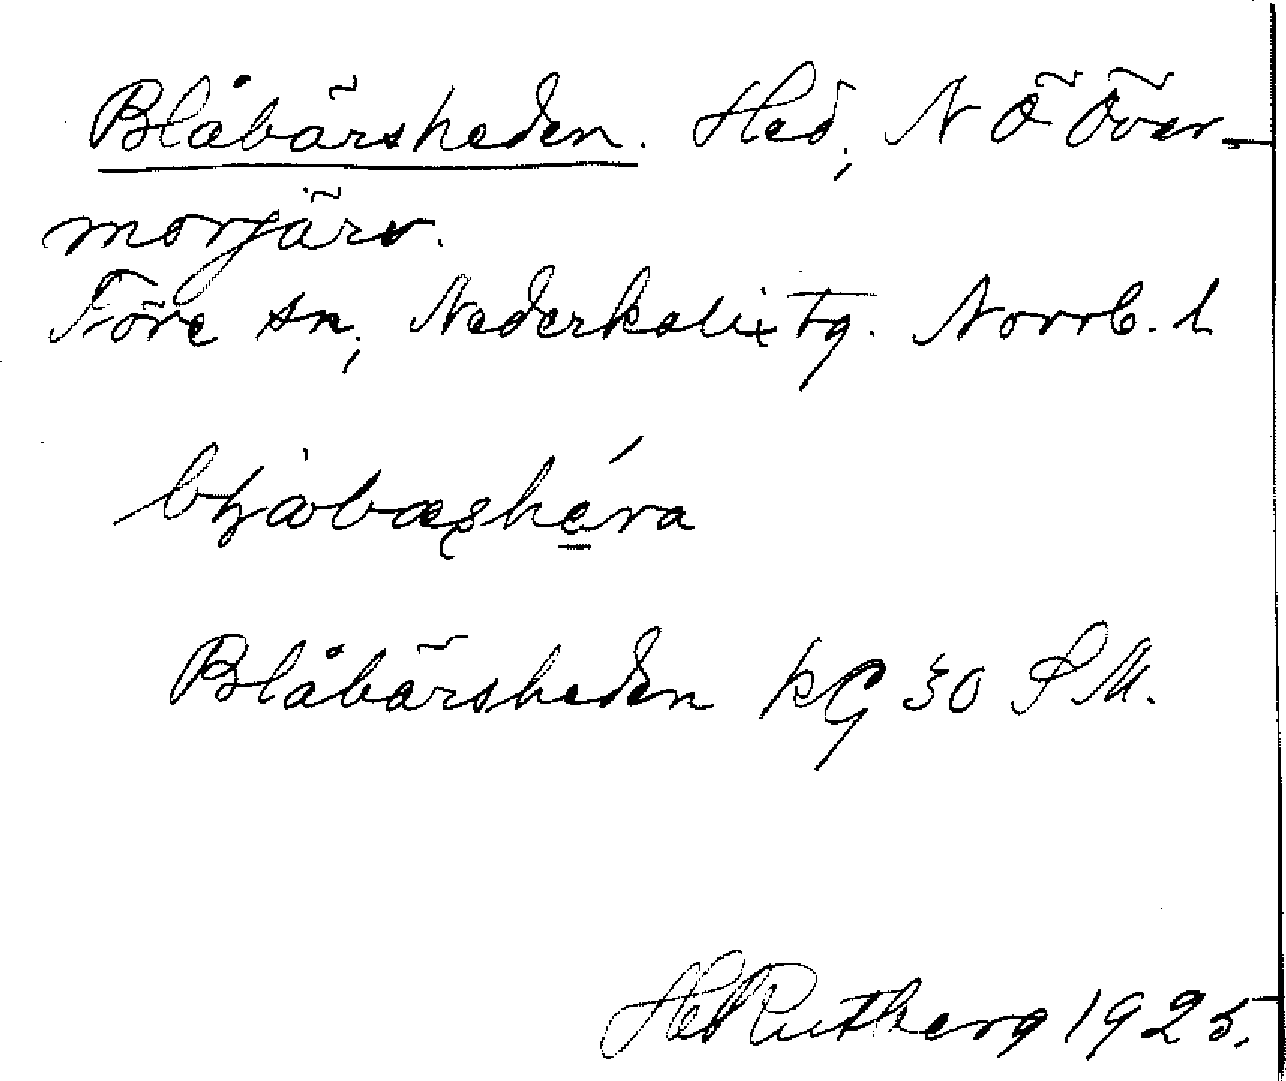 Blåbärsheden. Hed, N Ö Över-
morjärv.
Töre sn, Nederkalix tg. Norrb. l
Blåbärsheden kG 30 S M.
Hd Rutberg 1925.